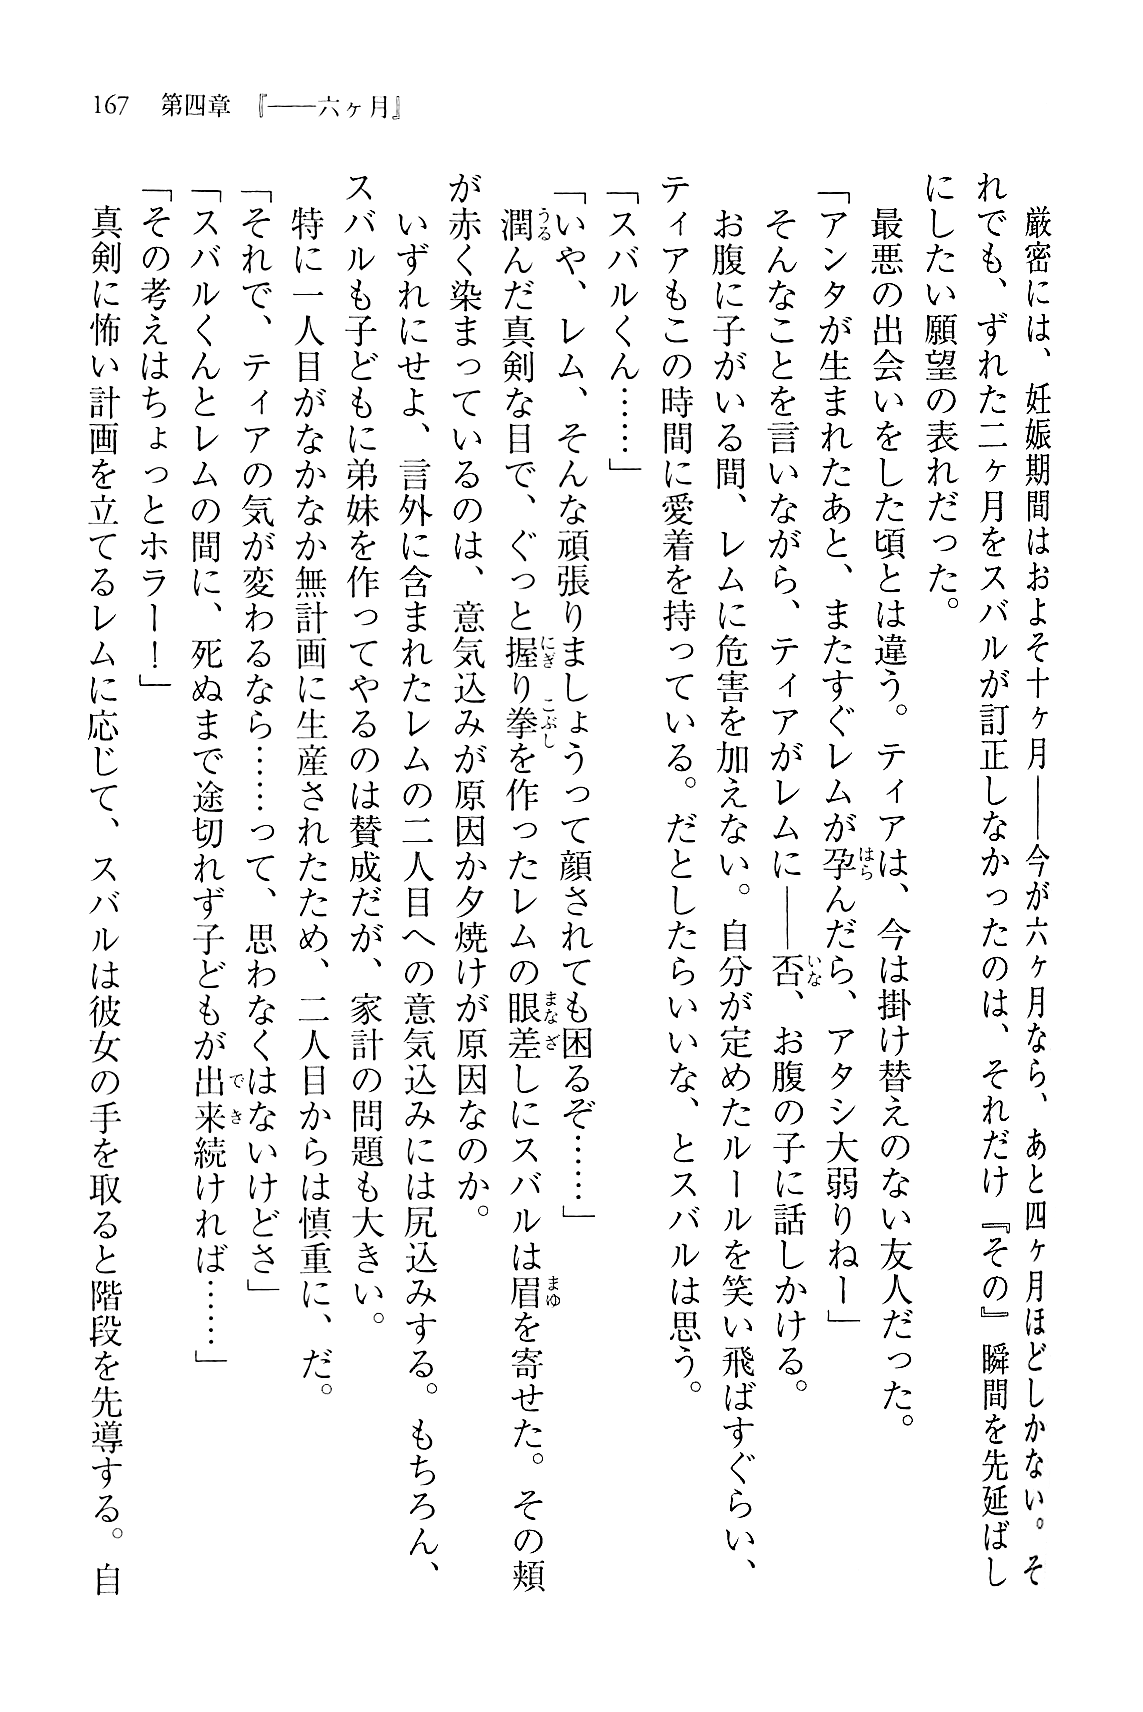 167　第四章　『――六ヶ月』
　厳密には、妊娠期間はおよそ十ヶ月――今が六ヶ月なら、あと四ヶ月ほどしかない。そ
れでも、ずれた二ヶ月をスバルが訂正しなかったのは、それだけ『その』瞬間を先延ばし
にしたい願望の表れだった。
　最悪の出会いをした頃とは違う。ティアは、今は掛け替えのない友人だった。
「アンタが生まれたあと、またすぐレムが孕んだら、アタシ大弱りねー」
　そんなことを言いながら、ティアがレムに――否、お腹の子に話しかける。
　お腹に子がいる間、レムに危害を加えない。自分が定めたルールを笑い飛ばすぐらい、
ティアもこの時間に愛着を持っている。だとしたらいいな、とスバルは思う。
「スバルくん……」
「いや、レム、そんな頑張りましょうって顔されても困るぞ……」
　潤んだ真剣な目で、ぐっと握り拳を作ったレムの眼差しにスバルは眉を寄せた。その頬
が赤く染まっているのは、意気込みが原因か夕焼けが原因なのか。
　いずれにせよ、言外に含まれたレムの二人目への意気込みには尻込みする。もちろん、
スバルも子どもに弟妹を作ってやるのは賛成だが、家計の問題も大きい。
　特に一人目がなかなか無計画に生産されたため、二人目からは慎重に、だ。
「それで、ティアの気が変わるなら……って、思わなくはないけどさ」
「スバルくんとレムの間に、死ぬまで途切れず子どもが出来続ければ……」
「その考えはちょっとホラー！」
　真剣に怖い計画を立てるレムに応じて、スバルは彼女の手を取ると階段を先導する。自